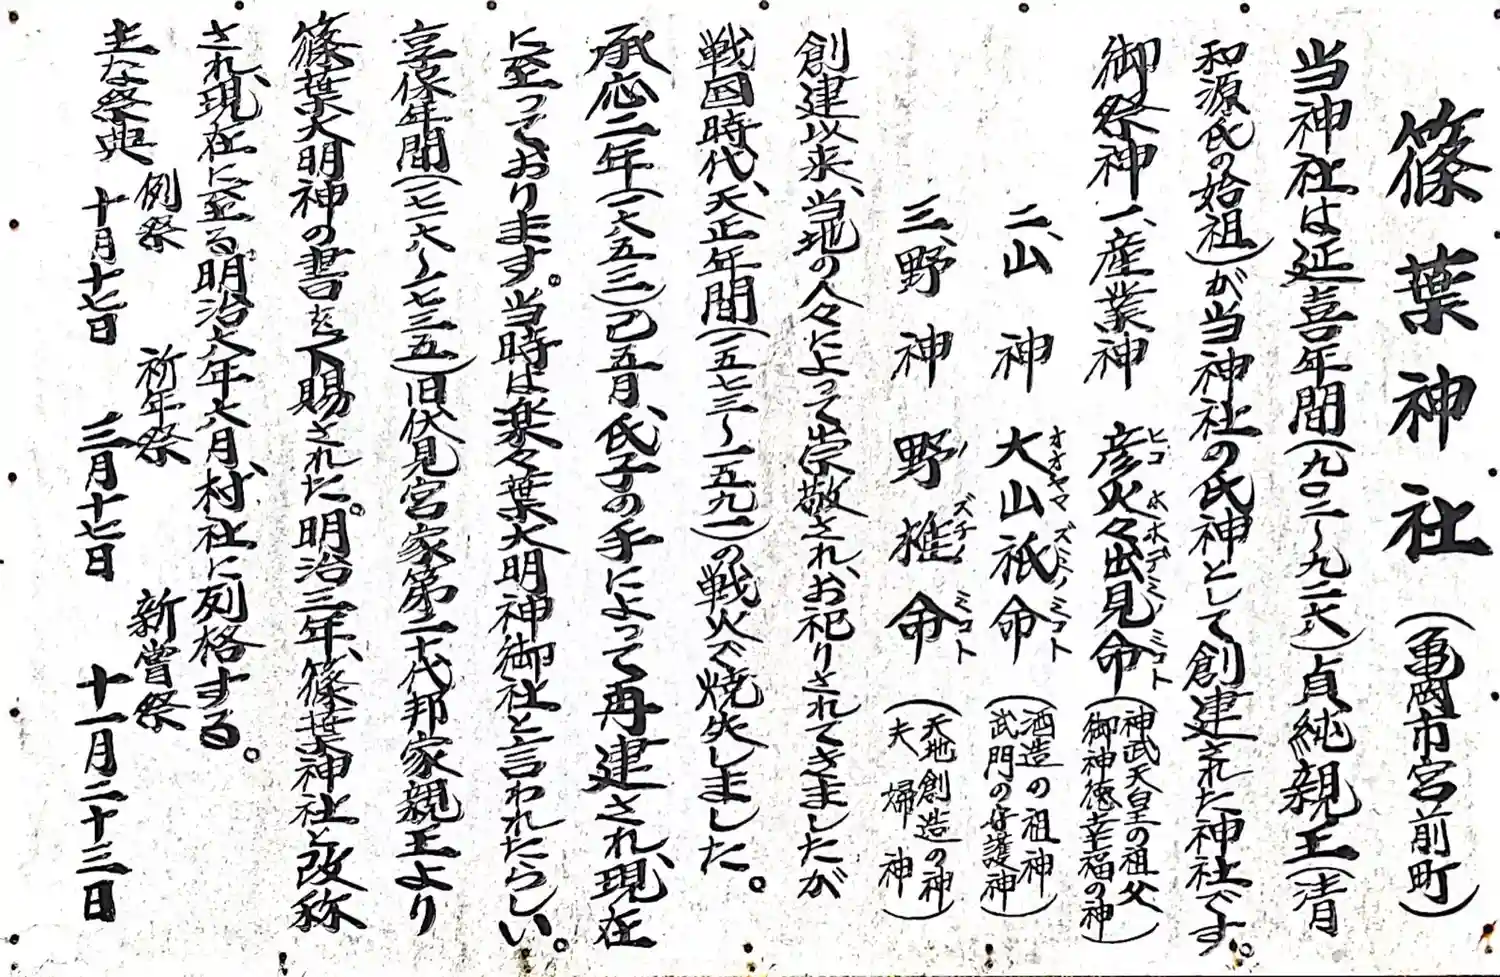 篠葉神社(亀岡市宮前町)
当神社は延喜年間(九〇二~九二六)貞純親王(清
和源氏の始祖)が当神社の氏神として創建された神社です。
御祭神 一、産業神 彦火々出見命 (神武天皇の祖父 御神徳幸福の神)
ヒコ ホホデミノ ミコト
二、山神 大山祇命 (酒造の祖神 武門の守護神)
オオヤマ ズミノ ミコト
三、野神 野椎命 (天地創造の神 夫婦神)
ノ ズチノ ミコト
創建以来、当地の人々によって崇敬され、お祀りされてきましたが
戦国時代、天正年間(一五七三~一五九一)の戦火で焼失しました。
承応二年(一六五三)己五月、氏子の手によって再建され、現在
に至っております。当時は楽々葉大明神御社と言われたらしい。
享保年間(一七一六~一七三五)旧伏見宮家第二十代邦家親王より
篠葉大明神の書を下賜された。明治三年、篠葉神社と改称
され、現在に至る。明治六年六月、村社に列格する。
主な祭典 例祭 十月十七日 祈年祭 三月十七日 新嘗祭 十一月二十三日